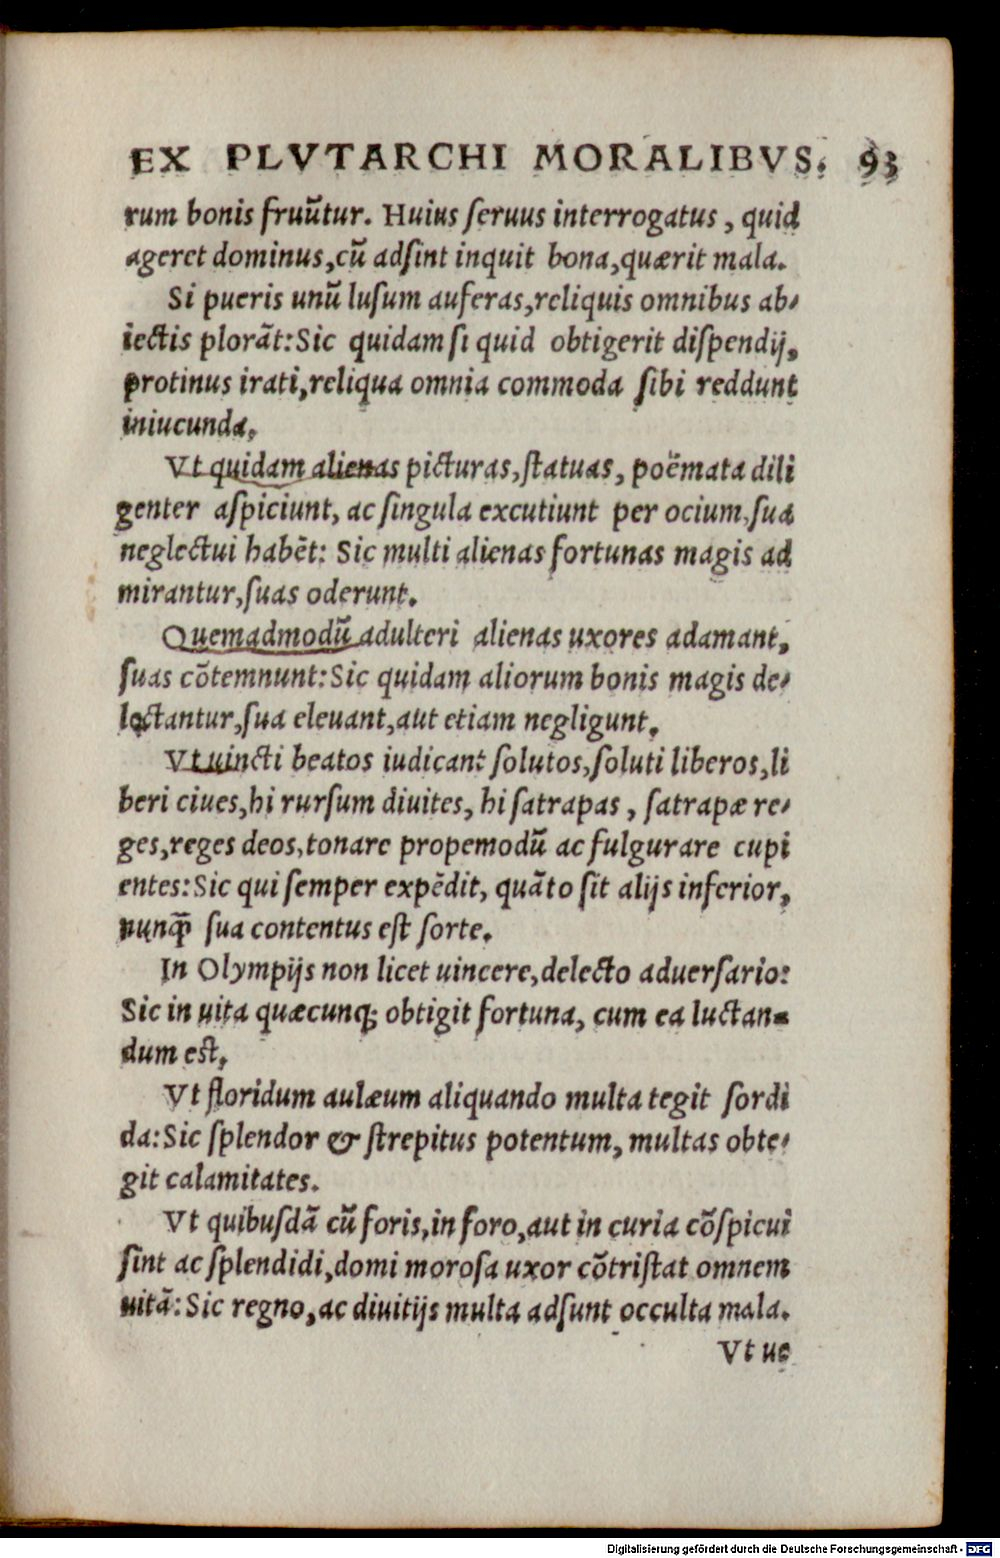 EX PLVTARCHI MORALIBVS. 93
rum bonis fruũtur. Huius ſeruus interrogatus, quid
ageret dominus, cũ adſint inquit bona, quærit mala.
Si pueris unũ luſum auferas, reliquis omnibus ab-
iectis plorãt: Sic quidam ſi quid obtigerit diſpendij,
protinus irati, reliqua omnia commoda ſibi reddunt
iniucunda.
Vt quidam alienas picturas, ſtatuas, poëmata dili
genter aſpiciunt, ac ſingula excutiunt per ocium, ſua
neglectui habẽt: Sic multi alienas fortunas magis ad
mirantur, ſuas oderunt.
Quemadmodũ adulteri alienas uxores adamant,
ſuas cõtemnunt: Sic quidam aliorum bonis magis de-
lectantur, ſua eleuant, aut etiam negligunt.
Vt uincti beatos iudicant ſolutos, ſoluti liberos, li
beri ciues, hi rurſum diuites, hi ſatrapas, ſatrapæ re-
ges, reges deos, tonare propemodũ ac fulgurare cupi
entes: Sic qui ſemper expẽdit, quãto ſit alijs inferior,
nunq̃ ſua contentus eſt ſorte.
In Olympijs non licet uincere, delecto aduerſario:
Sic in uita quæcunq; obtigit fortuna, cum ea luctan-
dum eſt.
Vt floridum aulæum aliquando multa tegit ſordi
da: Sic ſplendor & ſtrepitus potentum, multas obte-
git calamitates.
Vt quibuſdã cũ foris, in foro, aut in curia cõſpicui
ſint ac ſplendidi, domi moroſa uxor cõtriſtat omnem
uitã: Sic regno, ac diuitijs multa adſunt occulta mala.
Vt ue
Digitalisierung gefördert durch die Deutsche Forschungsgemeinschaft - DFG